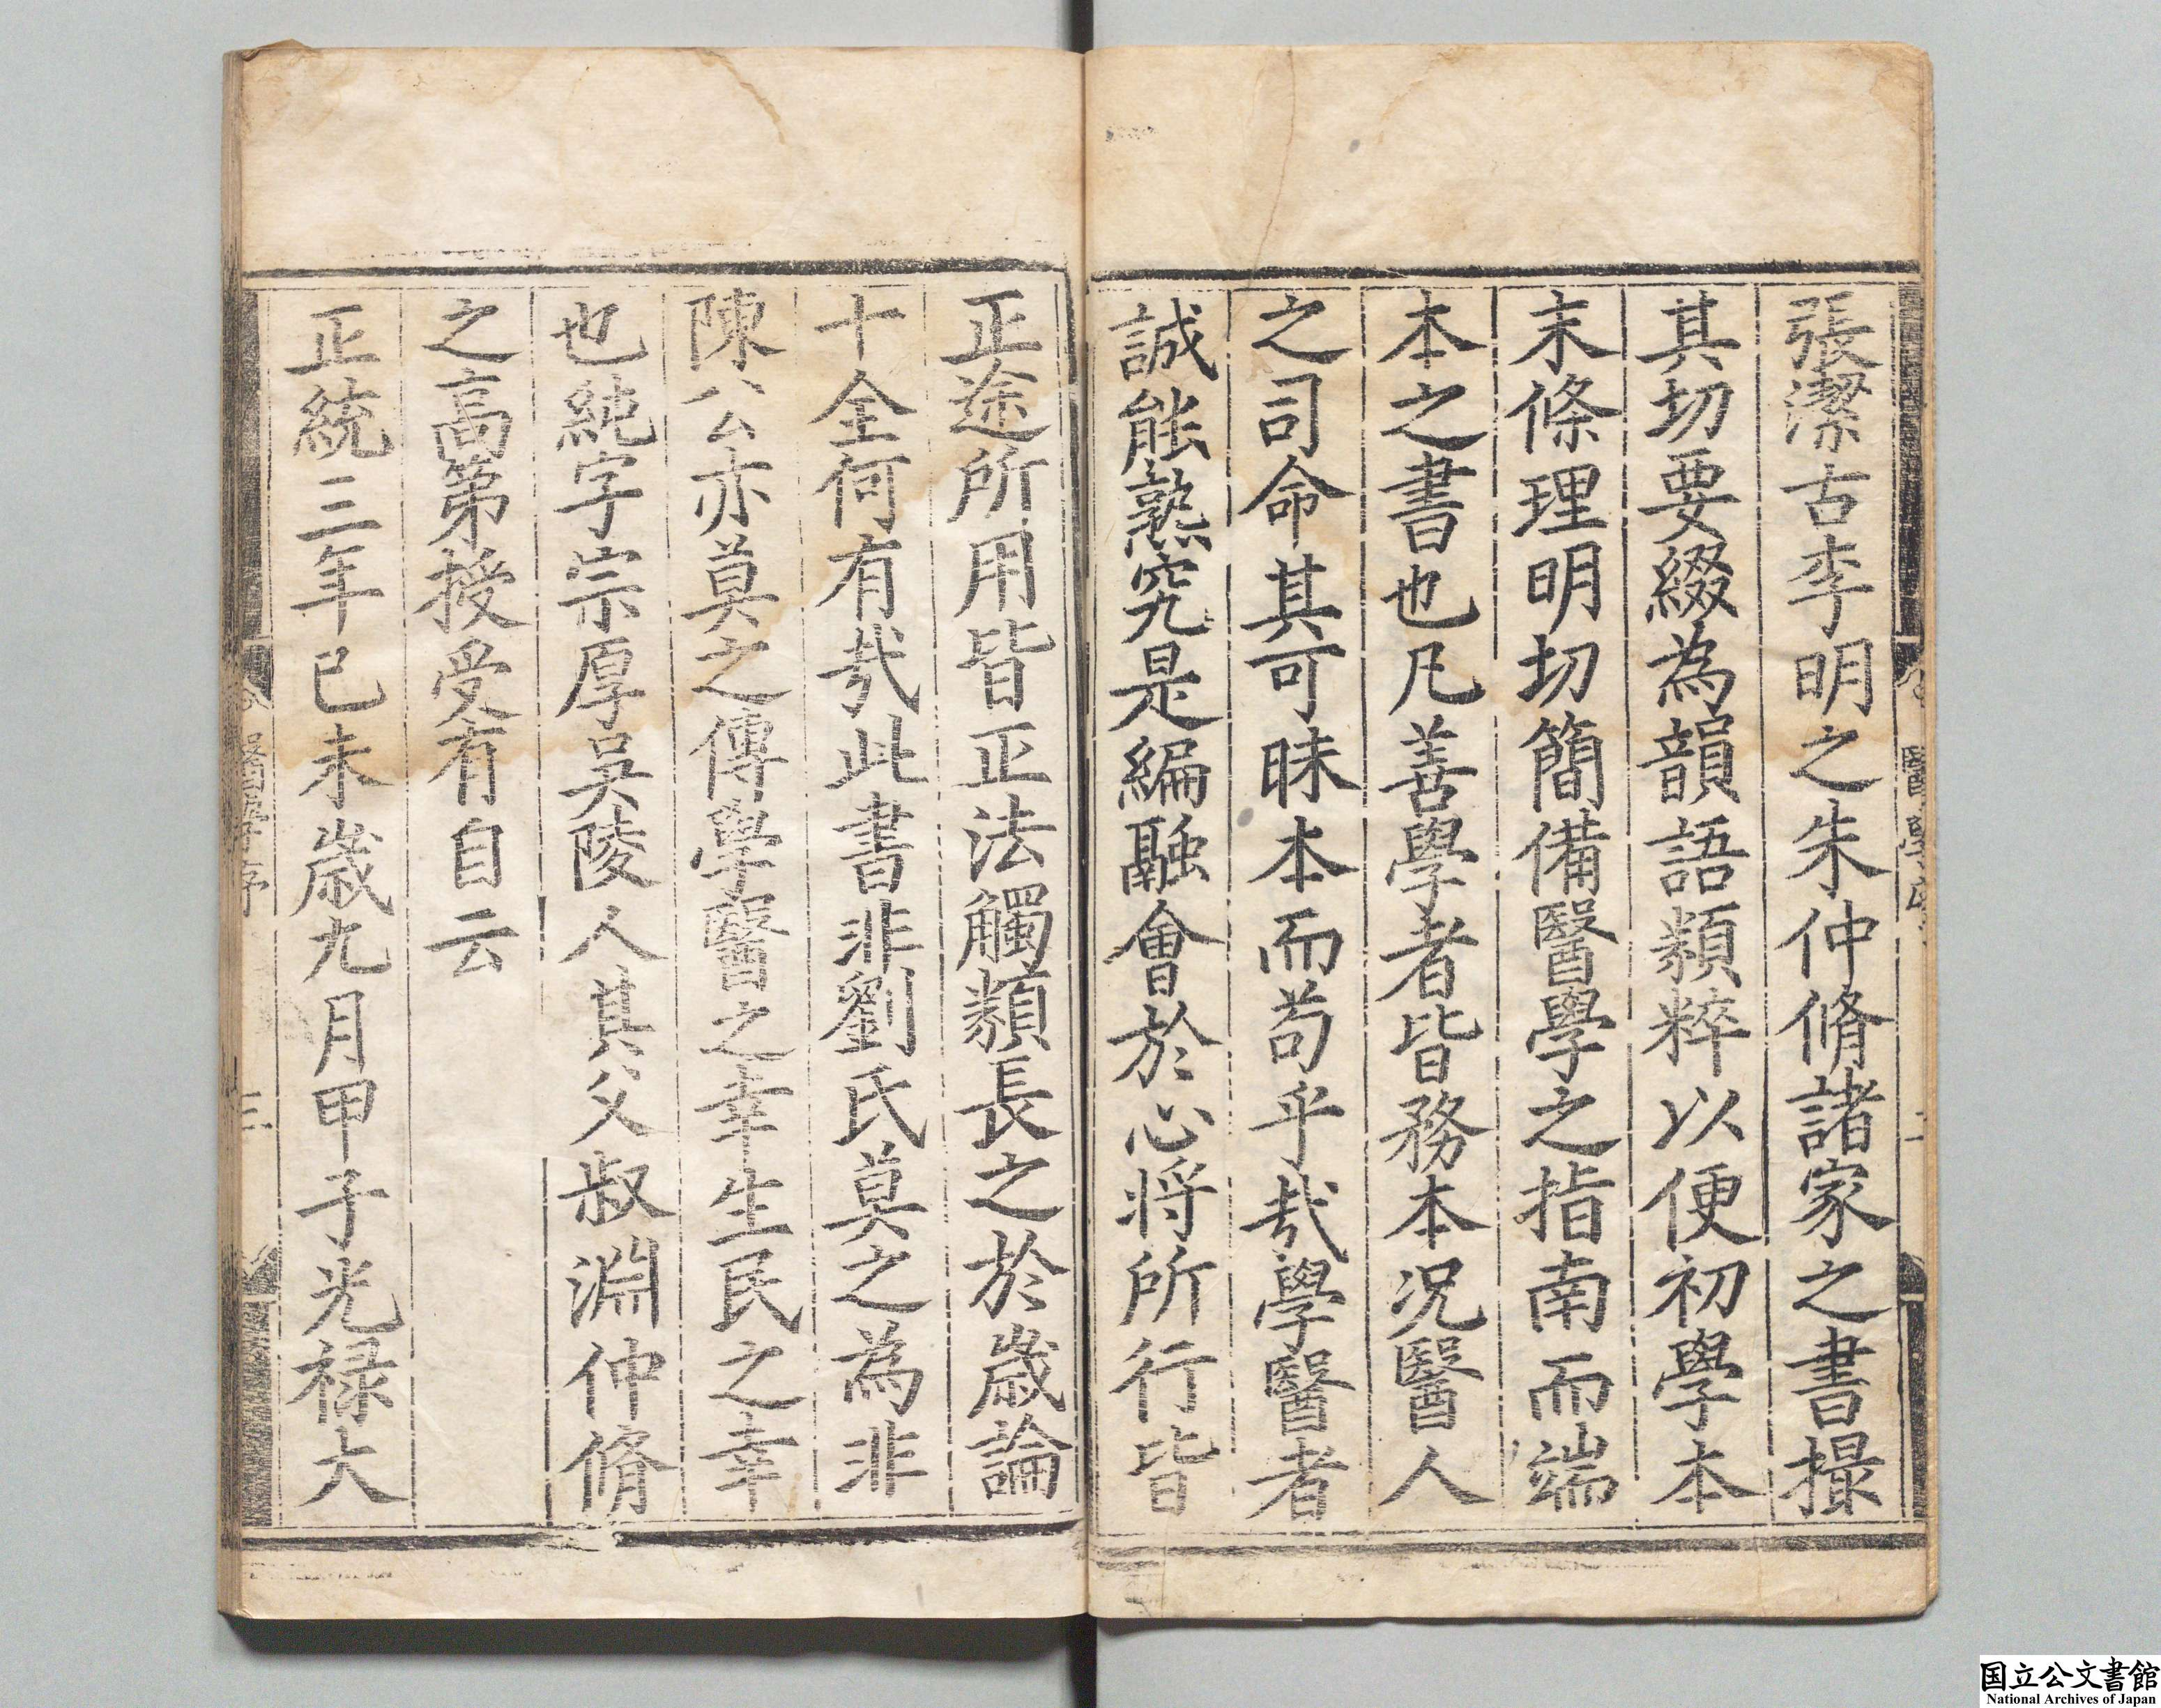 張潔古李明之朱仲脩諸家之書撮
其切要綴為韻語類粹以便初學本
末條理明切簡備醫學之指南而端
本之書也凡善學者皆務本况醫人
之司命其可昧本而苟乎哉學醫者
誠能熟究是編融會於心将所行皆
正途所用皆正法觸類長之於歲論
十全何有哉此書非劉氏莫之為非
陳公亦莫之傳學醫之幸生民之幸
也純字宗厚吳陵人其父叔淵仲脩
之高第授受有自云
正統三年已未歲九月甲子光禄大
醫學序
三
国立公文書館
National Archives of Japan